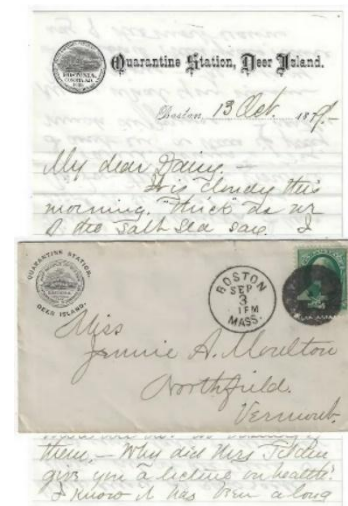 Quarantine Station, Deer Island.
Boston, 13 Oct. 187
My dear
It is cloudy this
morning. "thick" as we
o' the salt Sea say. I
QUARANTINE STATION,
DEER ISLAND.
BOSTON
SEP
3
1 PM
MASS.
Miss
Jennie A. Moulton
Northfield.
Vermont.
them, — Why did Mrs
give you a lecture on health?
I know it has been a long